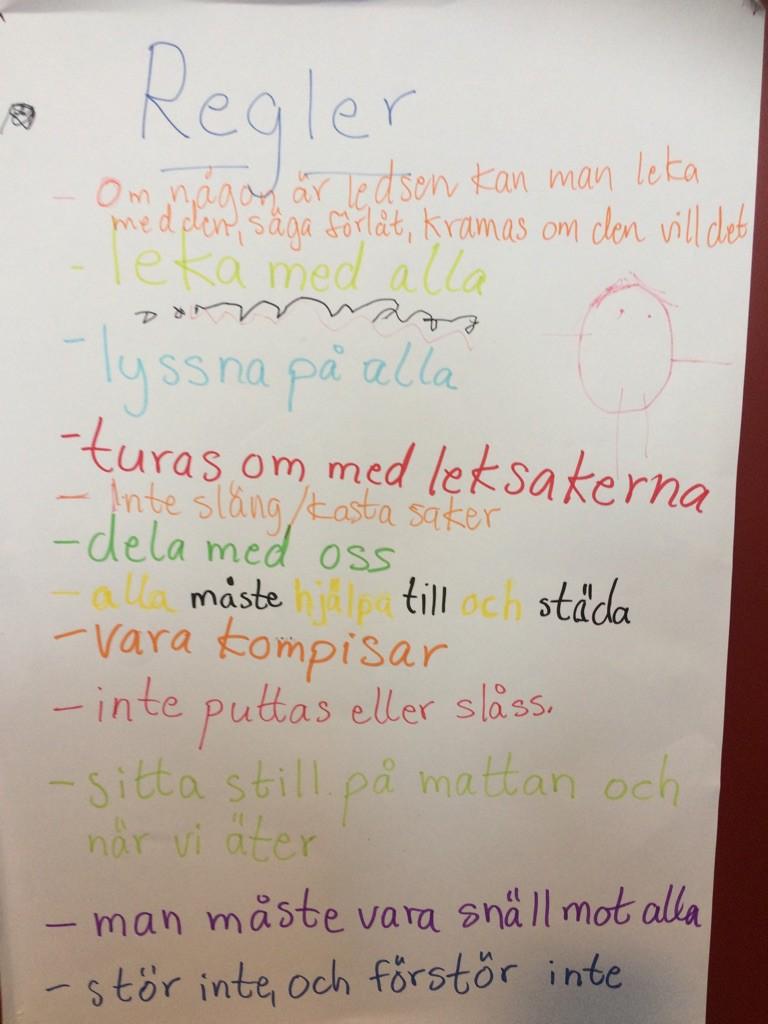 Regler
- Om någon är ledsen kan man leka
med den, säga förlåt, kramas om den vill det
- leka med alla
- lyssna på alla
- turas om med leksakerna
- Inte släng/kasta saker
- dela med oss
- alla måste hjälpa till och städa
- vara kompisar
- inte puttas eller slåss.
- sitta still på mattan och
när vi äter
- man måste vara snäll mot alla
- stör inte, och förstör inte